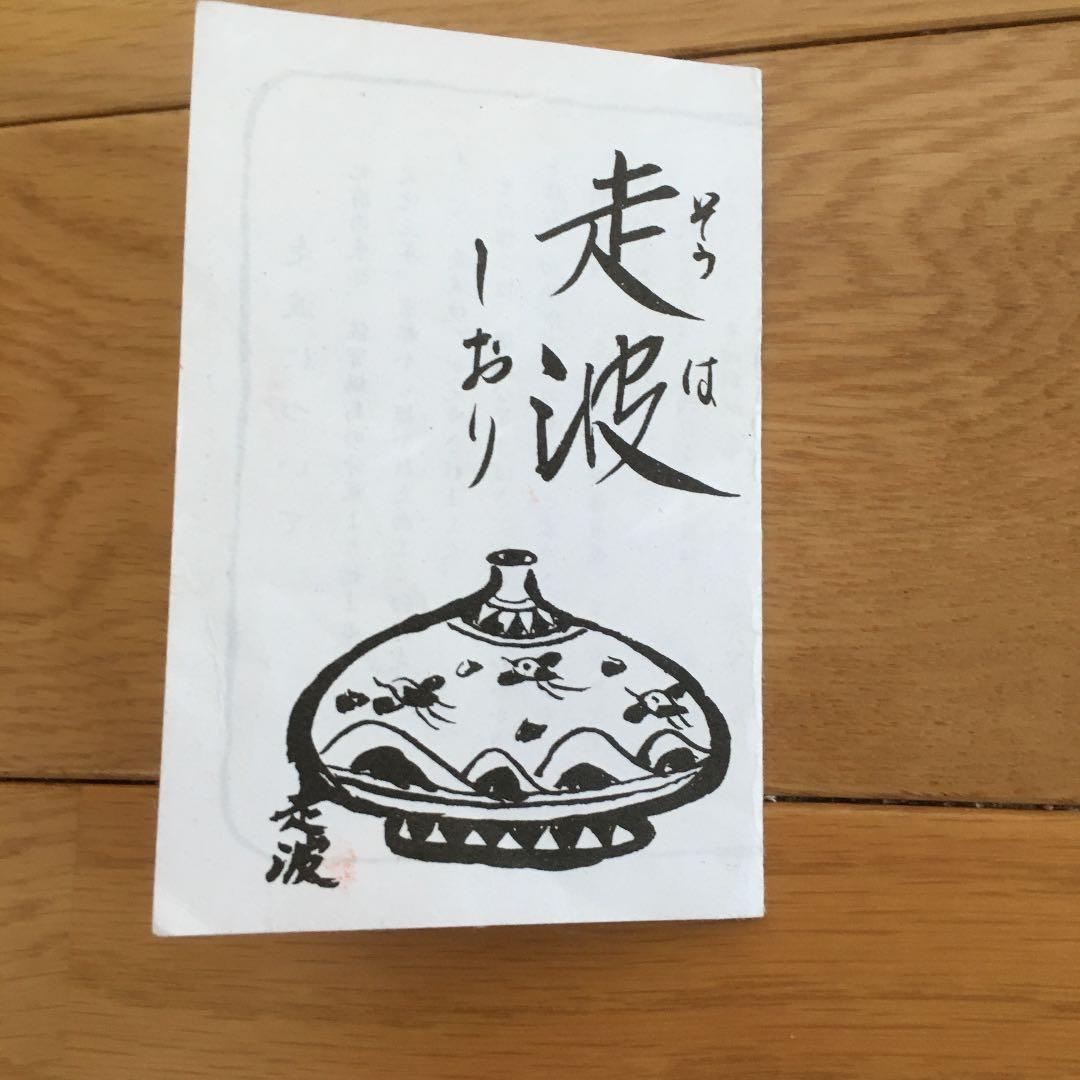 そうは
走波
しおり
走波